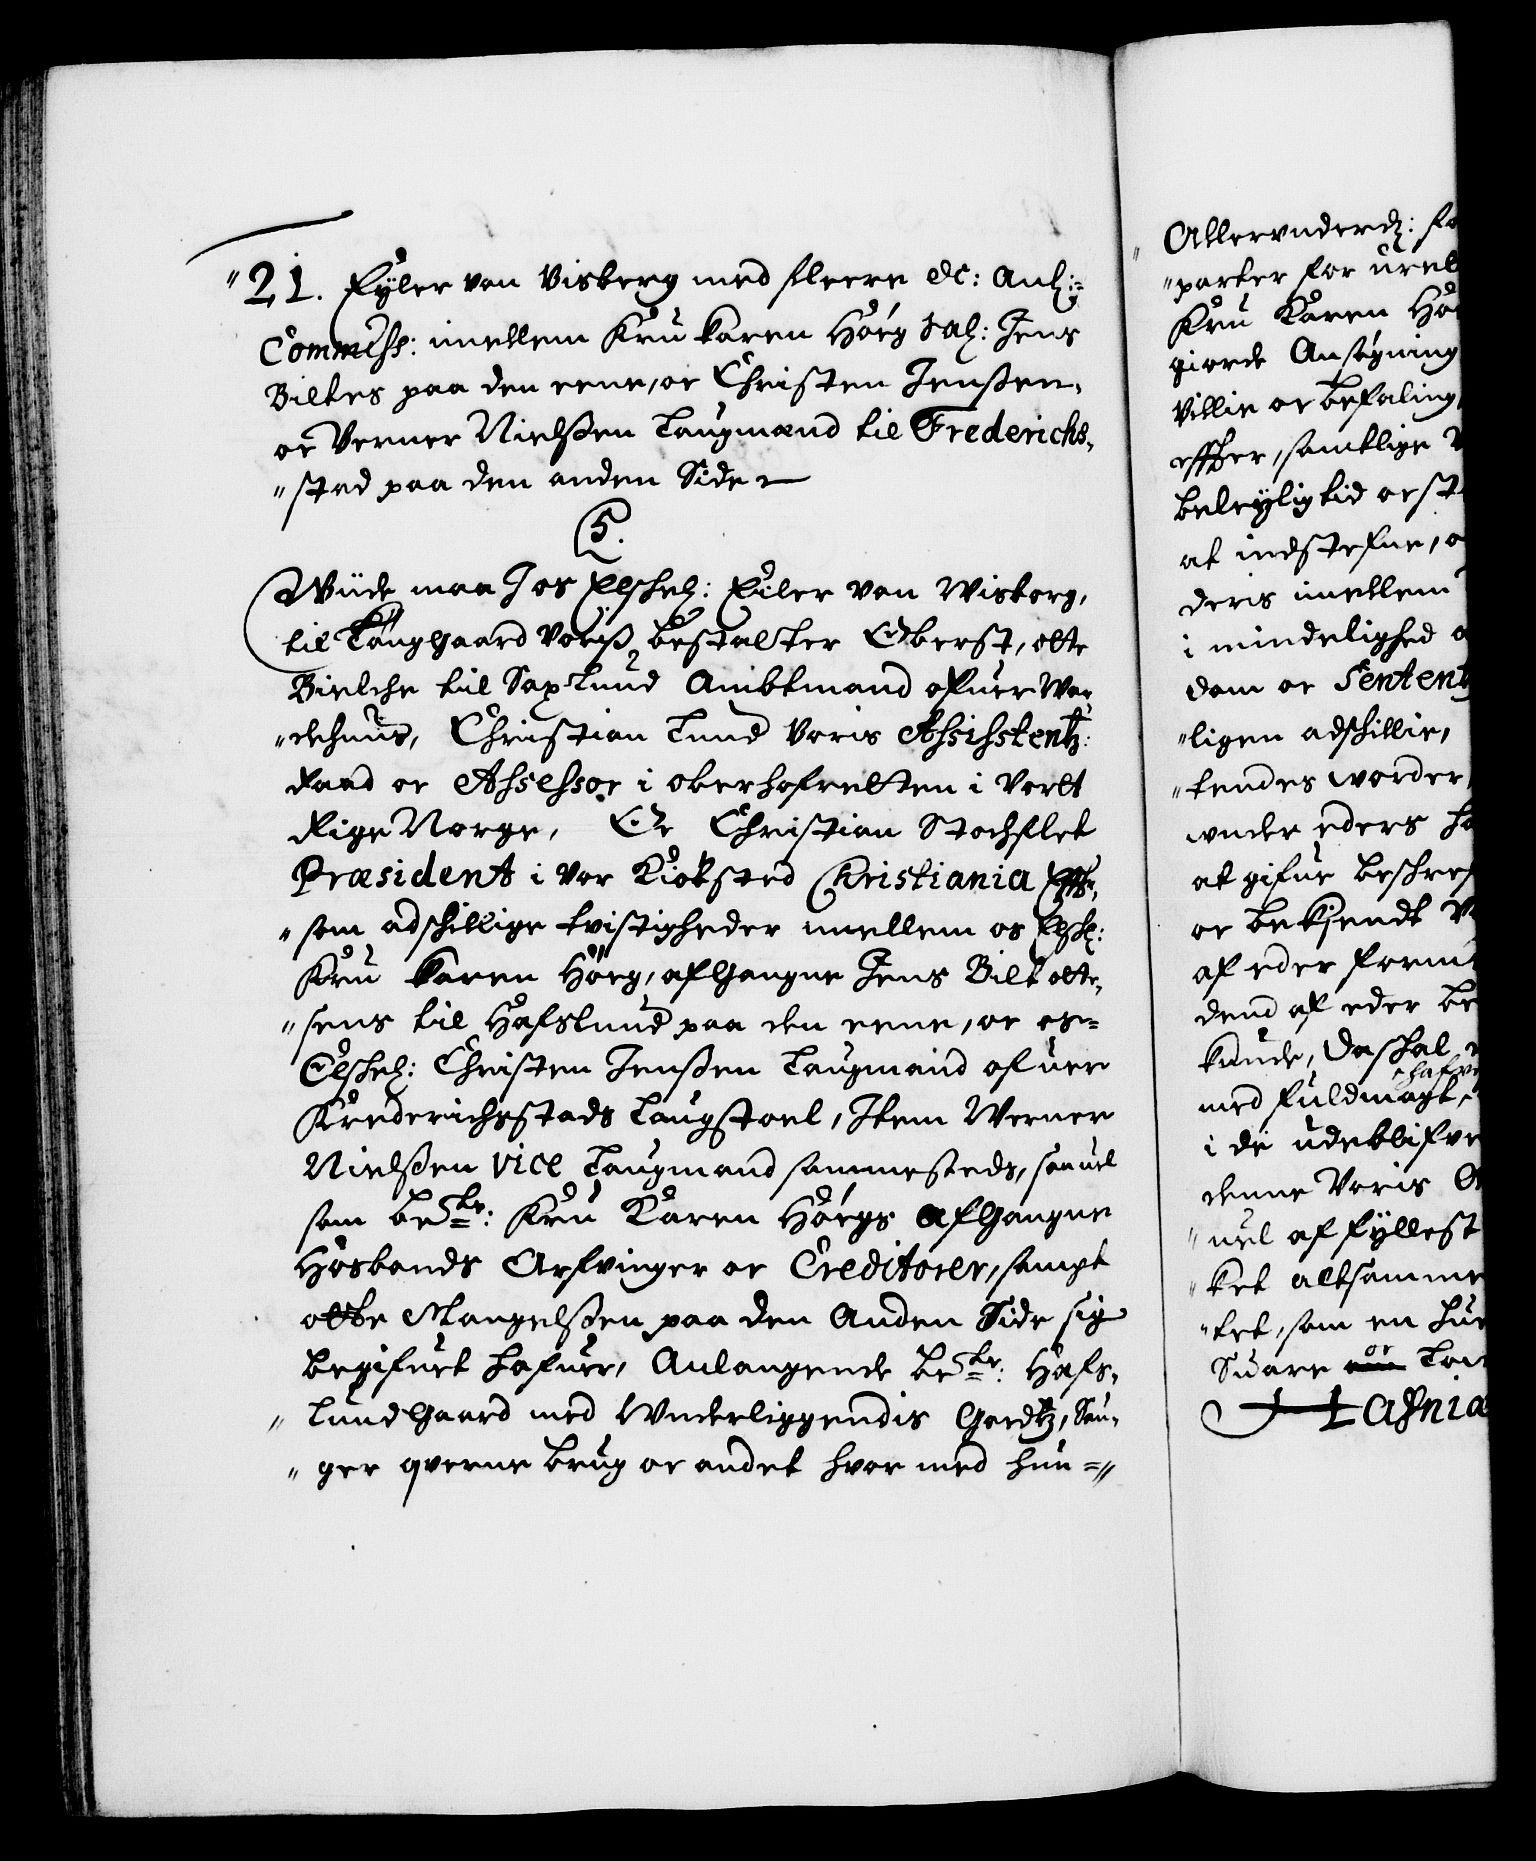 21. Eyler von Visberg med fleere etc: Anl:
Commiss: imellem Fru Karen Hörg Sal: Jens
Bilkes paa den eene, oc Christen Jenßen,
oc Verner Nielßen Laugmænd til Frederichs,
"sted paa den anden Side
5.
Wiide maa I os Elschel: Eiler von Wisborg,
til Tønsgaard Voris bestalter Oberst, otte
Bielche til Saxlund Ambtmand ofuer War
"dehuus, Christian Lund Voris Assistentz:
Raad oc Assessor i oberhofretten i Vort
Rige Norge, Oc Christian Stochflet
Præsident i vor Kiøbsted Christiania Effter,
"som adschillige tvistigheder imellem os Elschel:
Fru Karen Hörg, afgangne Jens Bilk otte,
"sens til Hafslund paa den eene, oc os=
Elschel: Christen Jenßen Laugmand ofuer
Frederichsstads Laugstoel, Item Werner
Nielßen vice Laugmand sammesteds, saauel
som bete: Fru Karen Hörgs Afgangne
Hosbonds Arfvinger oc Creditorer, sampt
otte Mangelßen paa den Anden Side sig
begifuet hafuer, Anlangende bete: Hafs,
"lund Gaard med Underliggendis Godtz, Sau,
"ger qverne brug oc andet hvor med hun="
Allerunderd: fo
"parter for
Fru Karen Hör
giorde Ansögning
Villie oc befaling,
effter, samtlige
beleylig tid oc st
at indstefne, o
deris imellem
i mindelighed
dom oc Sentent
"ligen adschillie,
"kendes worder,
under eders
at gifue beschref
oc bekjendt
af eder
dend af eder be
kunde, Da schal
hafve
med fuldmagt,
i de udeblifve
denne Voris
"uel af fyllest
"ket altsamme
"tet, som en hue
oc
Suare
Hafnia